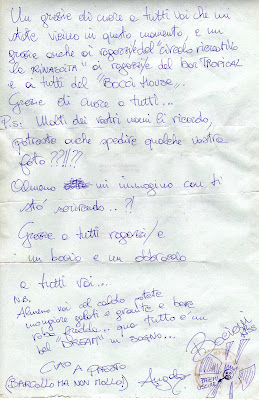 Un grazie di cuore a tutti voi che mi
state vicino in questo momento, e un
grazie anche ai ragazzi/e del "circolo ricreativo
la RINASCITA" ai ragazzi/e del bar TROPICAL
e a tutti del "BOCCI HOUSE"..
Grazie di cuore a tutti...
P.S: Molti dei vostri nomi li ricordo,
potreste anche spedire qualche vostra
foto ??!!??
Almeno mi immagino con chi
stò scrivendo..?!
Grazie a tutti ragazzi/e
un bacio e un abbraccio
a tutti voi....
N.B.
Almeno voi al caldo potete
mangiare gelati e granite e bere
roba fredda... qua tutto è un
bel "DREAM" un SOGNO...
CIAO A PRESTO
(BARCOLLO MA NON MOLLO)
Bacioni